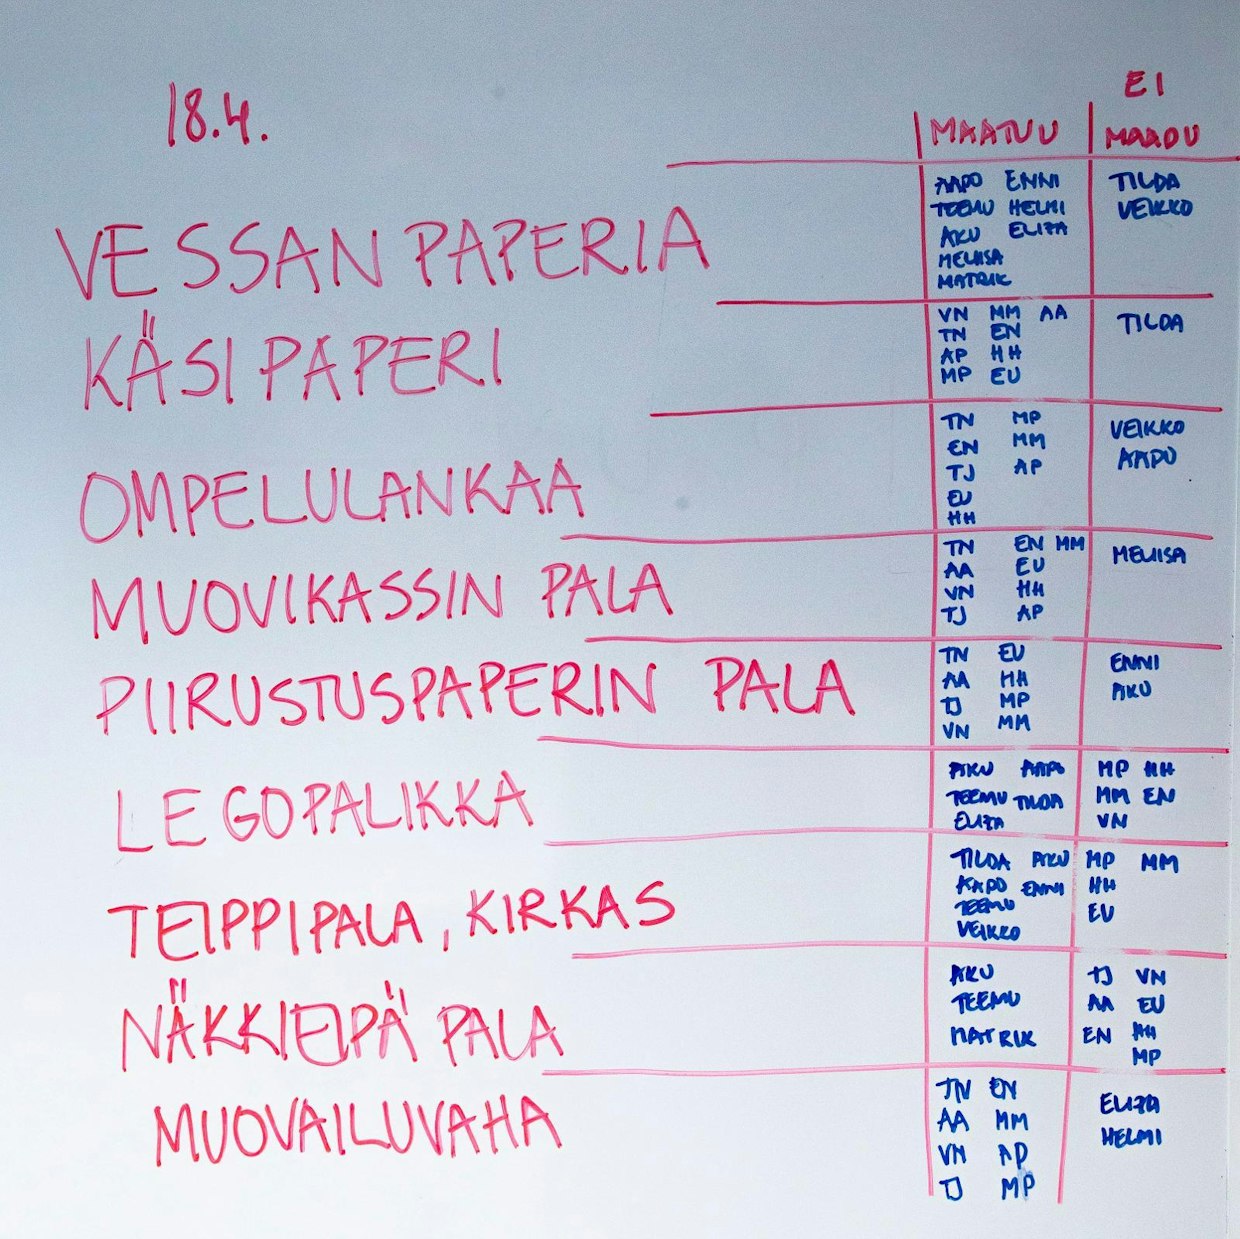 18.4.
EI
MAATUU MAADU
VESSAN PAPERIA
AAPO ENNI
TEEMU HELMI
AKU ELIZA
MELIISA
MATRIK
TILDA
VEIKKO
KÄSIPAPERI
VN MM AA
TN EN
AP HH
MP EU
TILDA
OMPELULANKAA
TN MP
EN MM
TJ AP
EU
HH
VEIKKO
AAPO
MUOVIKASSIN PALA
TN EN MM
AA EU
VN HH
TJ AP
MELIISA
PIIRUSTUSPAPERIN PALA
TN EU
AA HH
TJ MP
VN MM
ENNI
AKU
LEGOPALIKKA
AKU AAPO
TEEMU TILDA
ELIZA
MP HH
MM EN
VN
TEIPPIPALA, KIRKAS
TILDA AKU
AAPO ENNI
TEEMU
VEIKKO
MP MM
HH
EU
NÄKKIEIPÄ PALA
AKU
TEEMU
MATRIK
TJ VN
AA EU
EN HH
MP
MUOVAILUVAHA
TN EN
AA MM
VN AP
TJ MP
ELIZA
HELMI